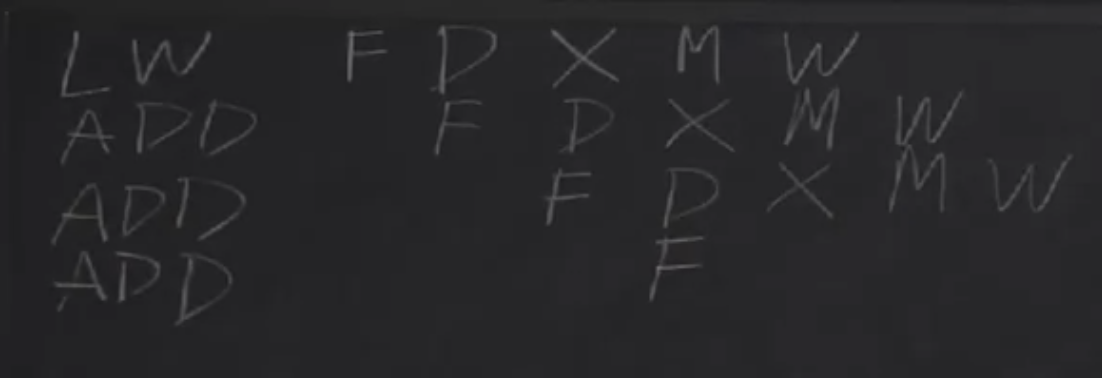 LW F D X M W
ADD F D X M W
ADD F D X M W
ADD F